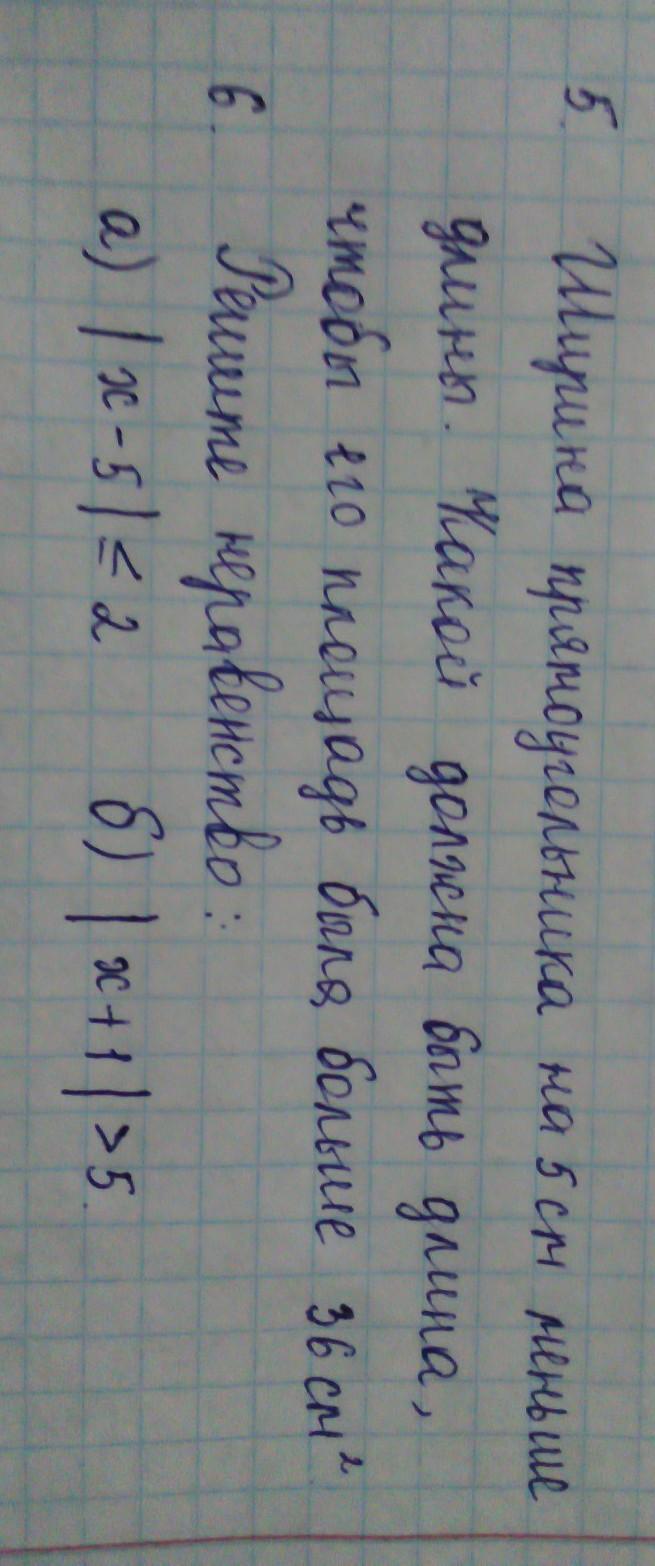 5. Ширина прямоугольника на 5 см меньше
длины. Какой должна быть длина,
чтобы его площадь была больше 36 см²
6. Решите неравенство:
а) |x-5| ≤ 2 б) |x+1| >5.